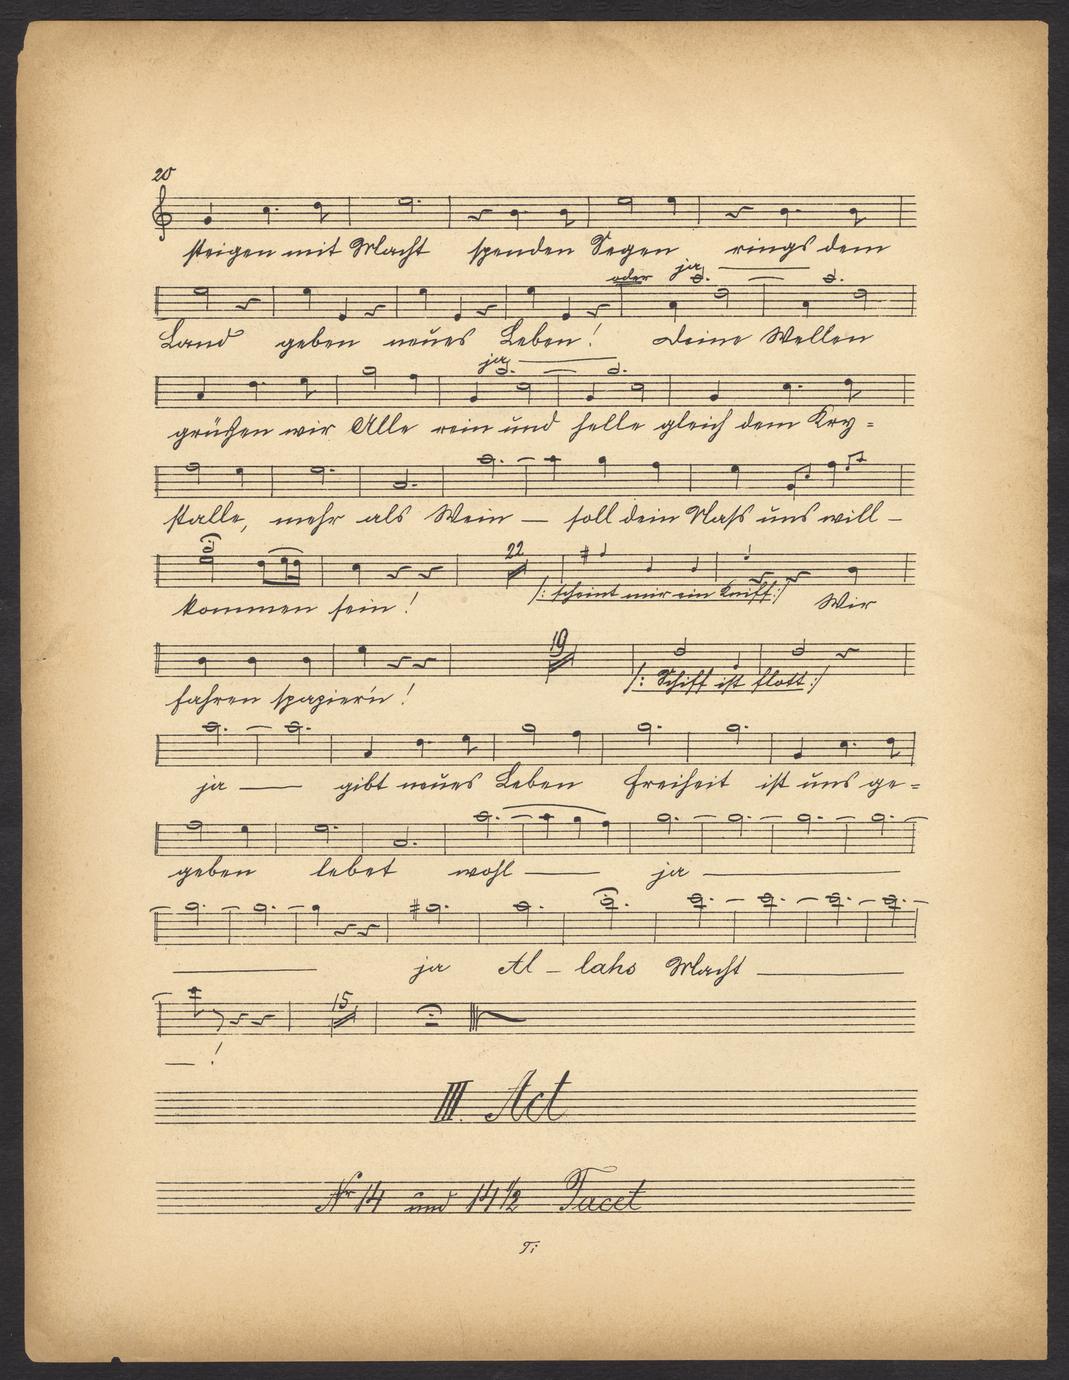 20
steigen mit Macht spenden Segen rings dem
oder ja
Land geben neues Leben! Deine Wellen
ja
grüßen wir Alle rein und helle gleich dem Kry=
stalle, mehr als Wein — soll dein Nass uns will-
22
kommen sein! /: scheint mir ein Kniff :/ Wir
19
fahren spazier'n! /: Schiff ist flott :/
ja — gibt neues Leben Freiheit ist uns ge=
geben lebet wohl — ja —
ja Al-lahs Macht —
15
— !
III. Act
Nr 14 und 14 1/2 Tacet